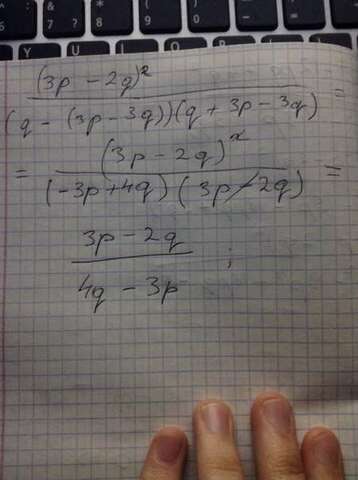 (3p - 2q)²
(q - (3p - 3q))(q + 3p - 3q) =
= (3p - 2q)²
(-3p + 4q) (3p - 2q) =
3p - 2q
4q - 3p ;